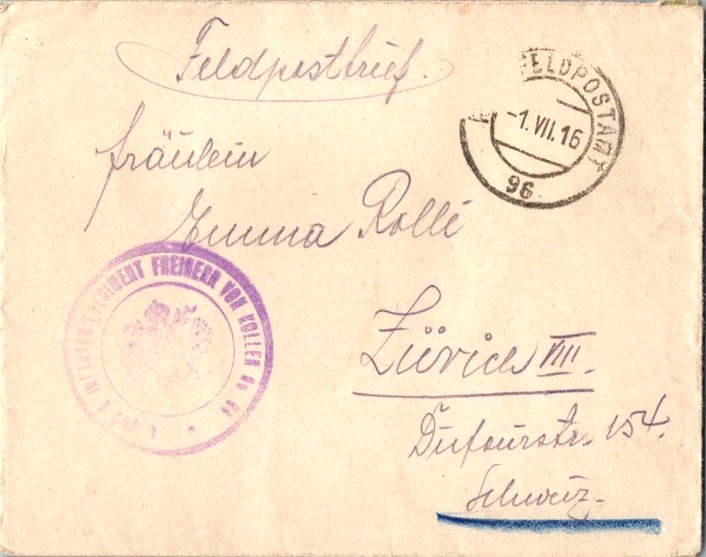 Feldpostbrief.
FELDPOSTAMT
-1.VII.16
96
Fräulein
Emma Rollé
K. UND K. INFANTERIEREGIMENT FREIHERR VON KOLLER No 94
Zürich VIII.
Dufourstr. 154.
Schweiz.